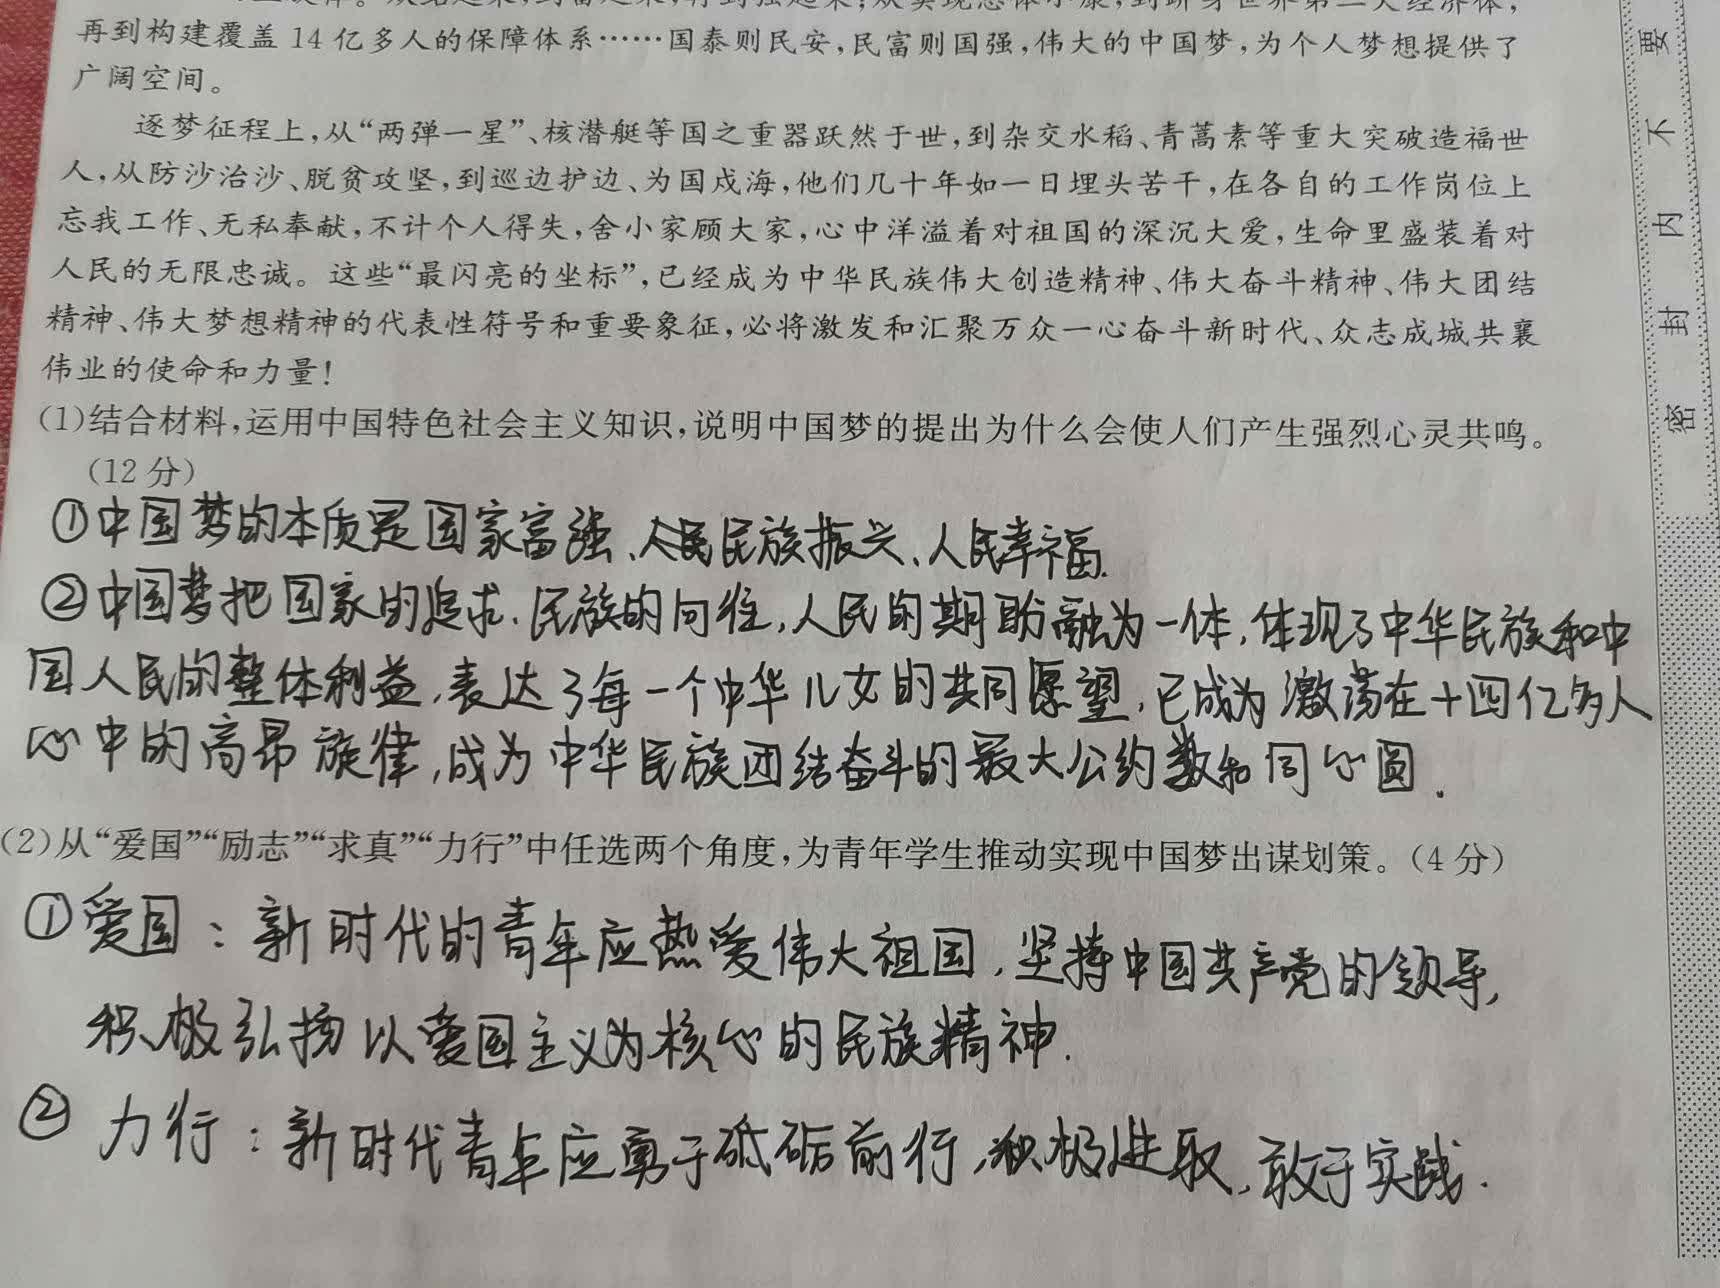 再到构建覆盖14亿多人的保障体系……国泰则民安,民富则国强,伟大的中国梦,为个人梦想提供了
广阔空间。
逐梦征程上,从“两弹一星”、核潜艇等国之重器跃然于世,到杂交水稻、青蒿素等重大突破造福世
人,从防沙治沙、脱贫攻坚,到巡边护边、为国戍海,他们几十年如一日埋头苦干,在各自的工作岗位上
忘我工作、无私奉献,不计个人得失,舍小家顾大家,心中洋溢着对祖国的深沉大爱,生命里盛装着对
人民的无限忠诚。这些“最闪亮的坐标”,已经成为中华民族伟大创造精神、伟大奋斗精神、伟大团结
精神、伟大梦想精神的代表性符号和重要象征,必将激发和汇聚万众一心奋斗新时代、众志成城共襄
伟业的使命和力量!
(1)结合材料,运用中国特色社会主义知识,说明中国梦的提出为什么会使人们产生强烈心灵共鸣。
(12分)
①中国梦的本质是国家富强、民族振兴、人民幸福.
②中国梦把国家的追求、民族的向往,人民的期盼融为一体,体现了中华民族和中
国人民的整体利益,表达了每一个中华儿女的共同愿望,已成为激荡在十四亿多人
心中的高昂旋律,成为中华民族团结奋斗的最大公约数和同心圆.
(2)从“爱国”“励志”“求真”“力行”中任选两个角度,为青年学生推动实现中国梦出谋划策。(4分)
①爱国:新时代的青年应热爱伟大祖国,坚持中国共产党的领导,
积极弘扬以爱国主义为核心的民族精神.
②力行:新时代青年应勇于砥砺前行,积极进取,敢于实践.
密 封 内 不 要